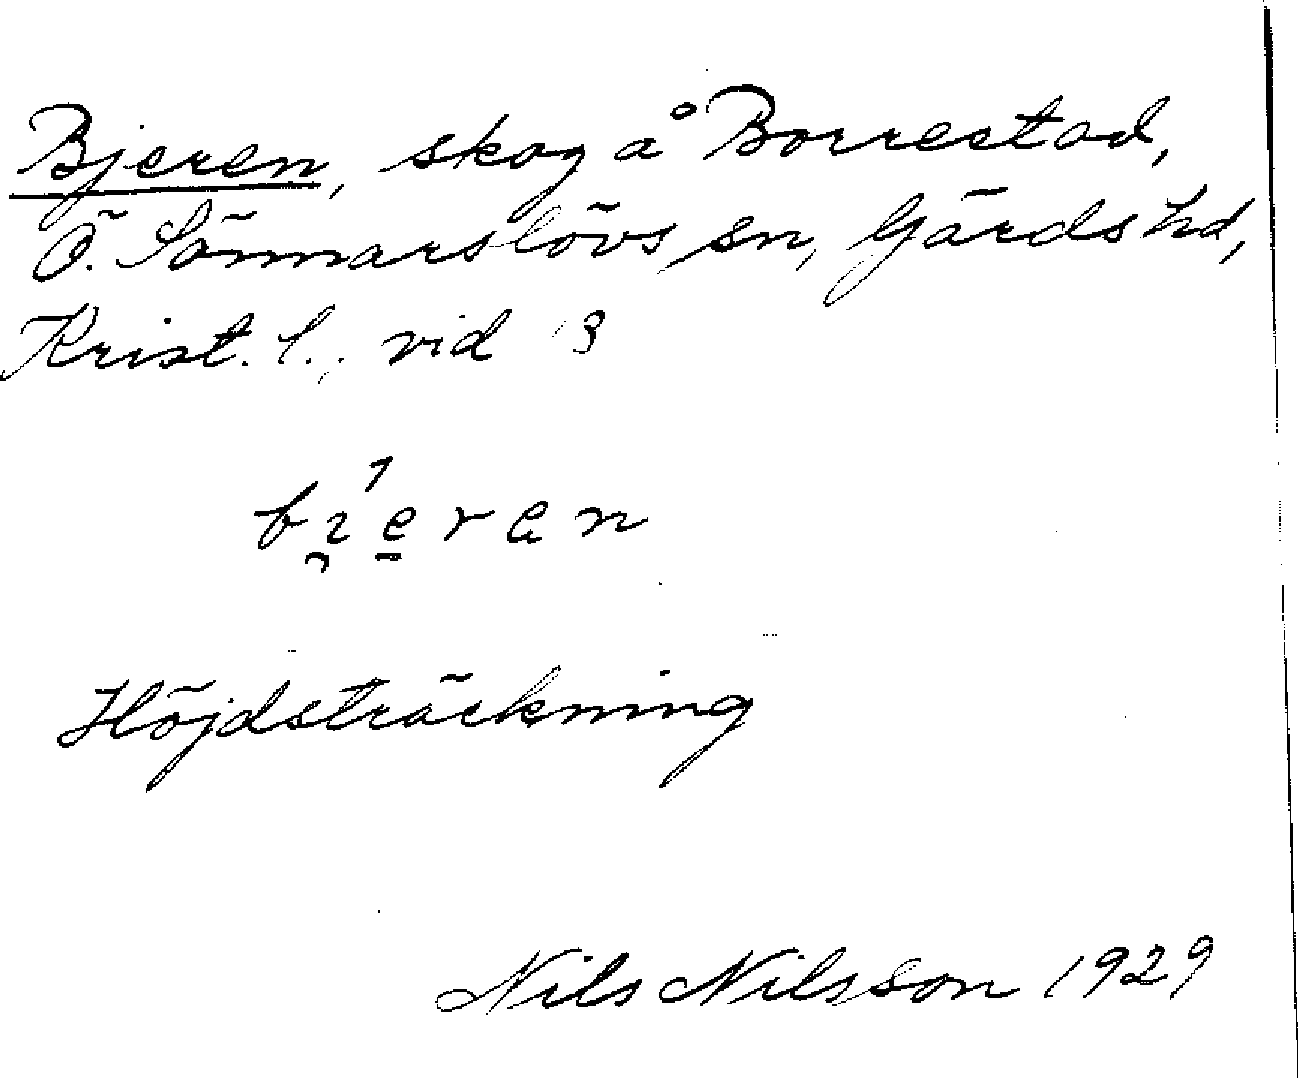 Bjeren, skog å Borrestad,
Ö. Sönnarslövs sn, Gärds hd,
Krist. l., vid 13
Höjdsträckning
Nils Nilsson 1929